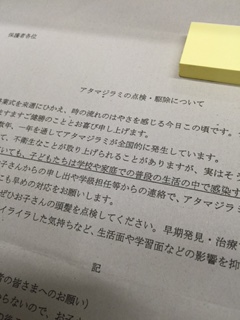 保護者各位
アタマジラミの点検・駆除について
業式を来週にひかえ、時の流れのはやさを感じる今日この頃です。
ますますご健勝のこととお喜び申し上げます。
数年、一年を通してアタマジラミが全国的に発生しています。
て、不衛生なことが取り上げられることがありますが、実はそう
いても、子どもたちは学校や家庭での普段の生活の中で感染す
子さんからの申し出や学級担任等からの連絡で、アタマジラ
にも早めの対応をお願いします。
ぜひお子さんの頭髪を点検してください。早期発見・治療
イライラした気持ちなど、生活面や学習面などの影響を抑
記
者の皆さまへのお願い)
からないので、お子